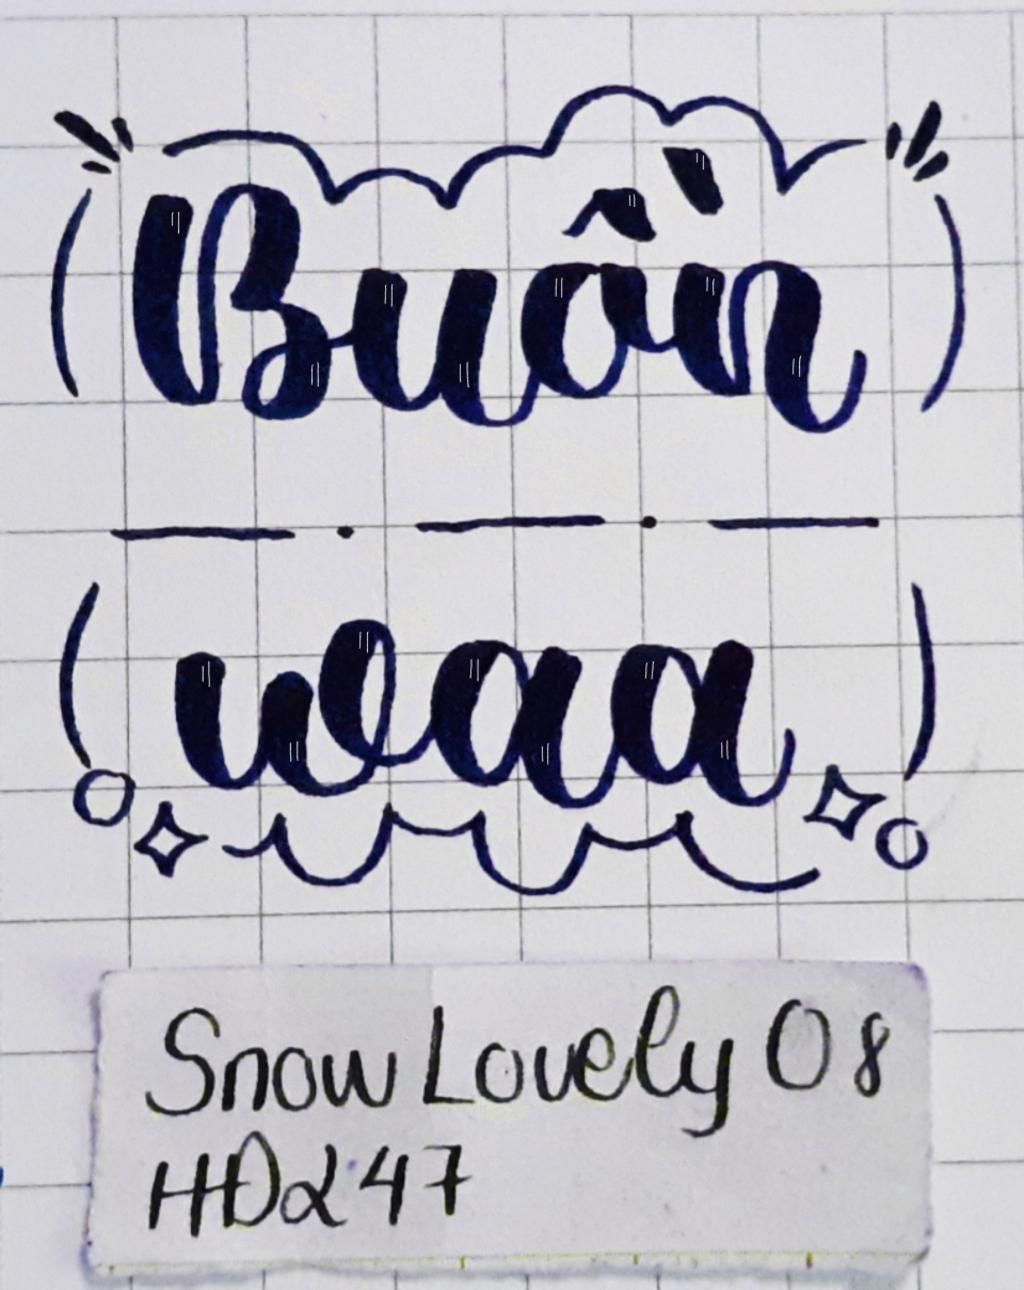 Buồn
waa
Snow Lovely 08
HD247